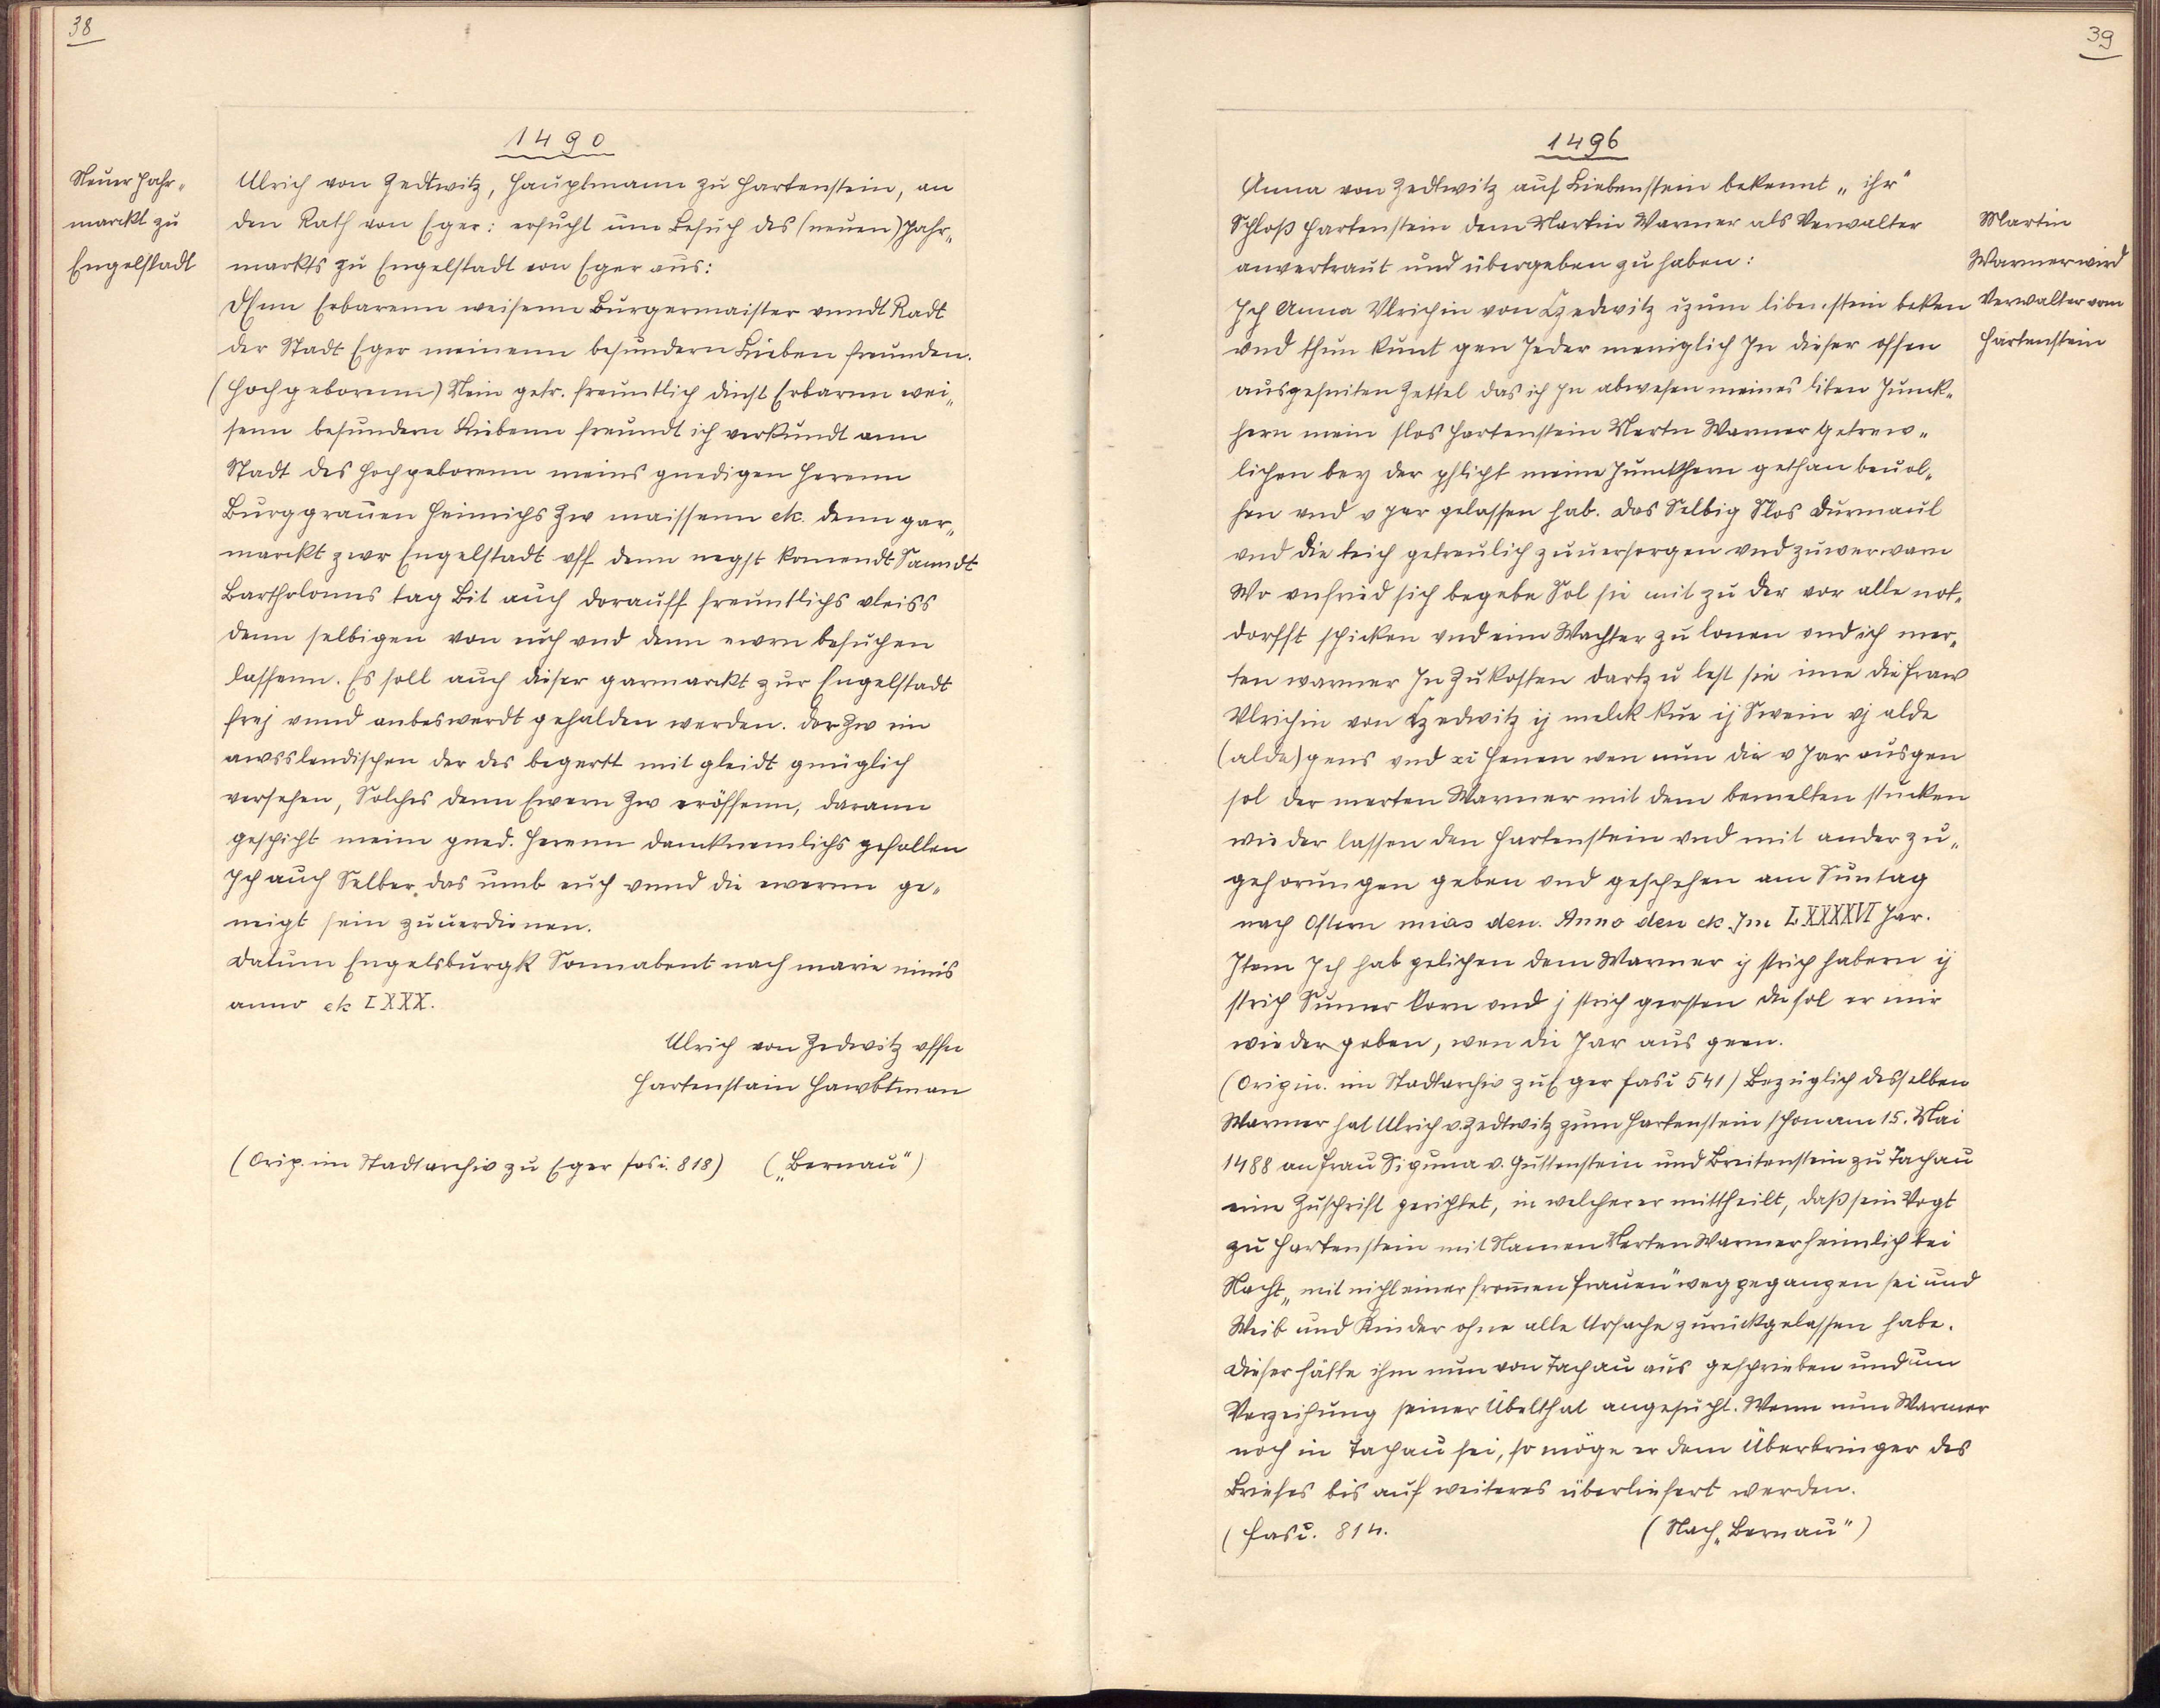 38
1490
Neuer Jahr-
marckt zu
Engelstadt
Ulrich von Zedtwitz, Hauptmann zu Hartenstein, an
den Rath von Eger: ersucht um Besuch des (neuen) Jahr-
markts zu Engelstadt von Eger aus:
DEnn Erbarenn weisenn Burgermaister vnndt Radt
der Stadt Eger meinenn besundern Lieben freunden.
(Hochgeborenn) Mein getr. freuntlich dinst Erbarnn wei-
senn besundern Liebenn freundt ich verkundt ann
Stadt des hochgeborenn meins gnedigen Herenn
Burggrauen Heinrichs Zw maissenn etc. denn gar-
marckt zwr Engelstadt vff denn negst komendt Sanndt
Bartholomes tag Bit auch dorauff freuntlichs vleiss
denn selbigen von euch vnd denn ewrn besuchen
lassenn. Es soll auch dieser garmarckt zur Engelstadt
frej vnnd anbeswerdt gehalden werden. der Zw im
awsslendischen der des begertt mit gleidt gnüglich
versehen, Solches denn Ewern Zw eröffenn, darann
geschicht meim gned. Herenn dancknemlichs gefallen
Ich auch Selber das umb euch vnnd die ewernn ge-
neigt sein zuuerdienen.
Datum Engelsburgk Sonnabent nach marie
anno etc LXXX.
Ulrich von Zedwitz vffn
Hartenstain Hawbtman
(Orig. im Stadtarchiv zu Eger fasc. 818) („Bernau“)
39
1496
Anna von Zedtwitz auf Liebenstein bekennt „ihr“
Schloß Hartenstein dem Martin Warmer als Verwalter
anvertraut und übergeben zu haben:
Martin
Warmer wird
Verwalter vom
Hartenstein
Ich Anna Vlrichin von Czedwitz izum libenstein beken
vnd thun kunt gen Jeder meniglich In dieser offen
ausgesniten Zettel das ich In abwesen meines liben Junck-
hern mein slos Hartenstein Mertn Warmer getrew-
lichen bey der pflicht meine Junckhern gethan beuol-
hen vnd v jar gelassen hab. das Selbig Slos Durmaul
vnd die teich getreulich zuuersorgen vnd zuwerwarn
Wo vnfried sich begebe Sol sie mit zu der vor alle not-
dorfft schicken vnd eim Wachter zu lonen vnd ich mer-
ten warmer In Zukosten dartzu lest sie ime die fraw
Vlrichin von Czedwitz ij melck kue ij Swein vj alde
(alde) gens vnd xi Henen wen nun die v Jar ausgen
sol der merten Warmer mit dem bemelten stucken
wieder lassen den Hartenstein vnd mit ander zu-
gehorungen geben vnd geschehen am Suntag
nach Ostern mias den. Anno den etc. Im LXXXXVI Jar.
Item Ich hab gelichen dem Warmer ij strich habern ij
strich Sumer korn vnd j strich gersten die sol er mir
wieder geben, wen die Jar aus geen.
(Origin. im Stadtarchiv zu Eger fasc 541) Bezüglich desselben
Warmer hat Ulrich v. Zedtwitz zum Hartenstein schon am 15. Mai
1488 an Frau Siguna v. Guttenstein und Breitenstein zu Tachau
eine Zuschrift gerichtet, in welcher er mittheilt, daß sein Vogt
zu Hartenstein mit Namen Merten Warmer heimlich bei
Nacht „mit nicht einer from̅en Frauen“ weg gegangen sei und
Weib und Kinder ohne alle Ursache zurückgelassen habe.
Dieser hätte ihm nun von Tachau aus geschrieben und um
Verzeihung seiner Übelthat angesucht. Wenn nun Warmer
noch in Tachau sei, so möge er dem Überbringer des
Briefes bis auf weiteres überliefert werden.
(fasc. 814. (Nach „Bernau“)